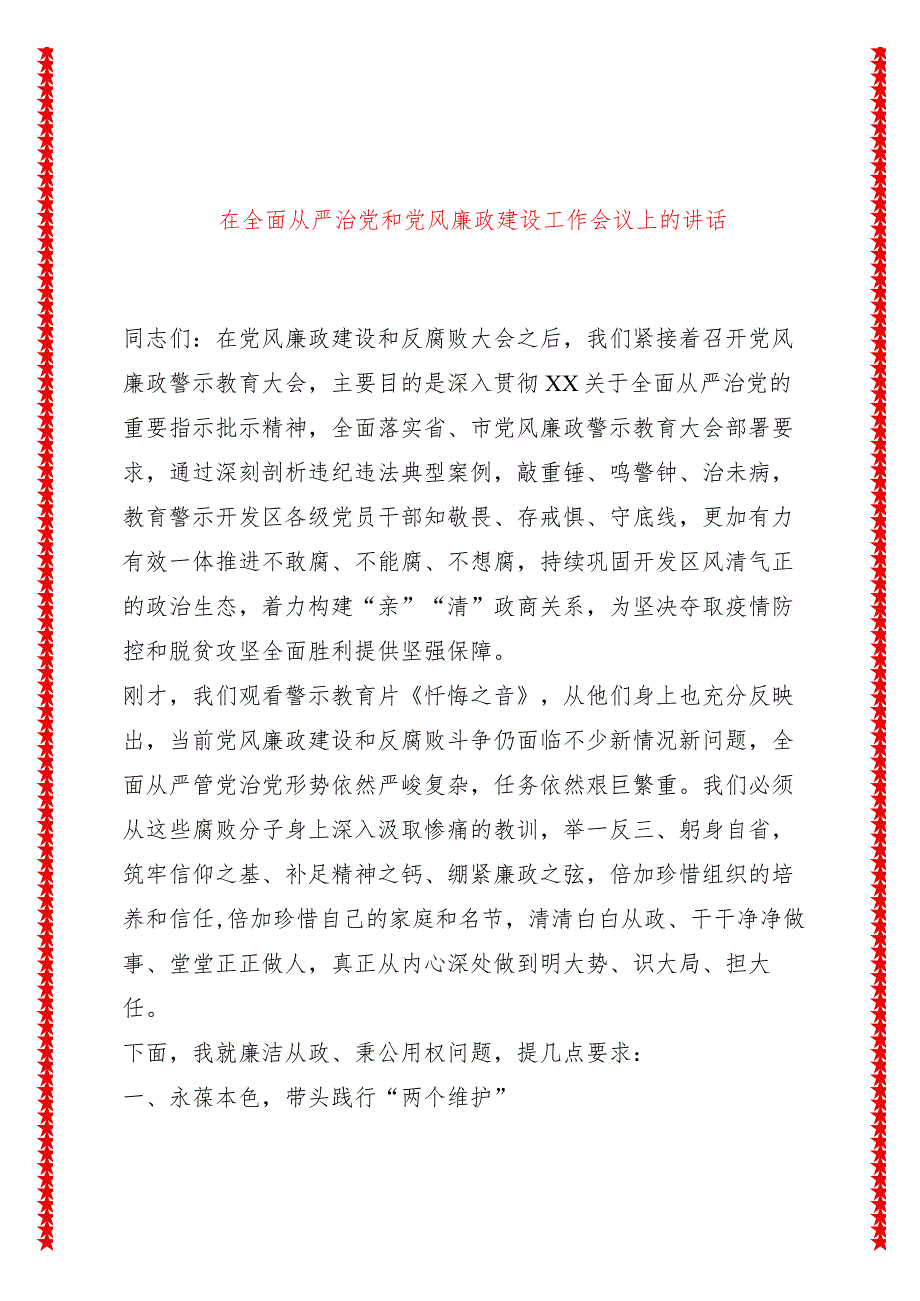 在全面从严治党和党风廉政建设工作会议上的讲话
同志们：在党风廉政建设和反腐败大会之后，我们紧接着召开党风
廉政警示教育大会，主要目的是深入贯彻XX关于全面从严治党的
重要指示批示精神，全面落实省、市党风廉政警示教育大会部署要
求，通过深刻剖析违纪违法典型案例，敲重锤、鸣警钟、治未病，
教育警示开发区各级党员干部知敬畏、存戒惧、守底线，更加有力
有效一体推进不敢腐、不能腐、不想腐，持续巩固开发区风清气正
的政治生态，着力构建“亲”“清”政商关系，为坚决夺取疫情防
控和脱贫攻坚全面胜利提供坚强保障。
刚才，我们观看警示教育片《忏悔之音》，从他们身上也充分反映
出，当前党风廉政建设和反腐败斗争仍面临不少新情况新问题，全
面从严管党治党形势依然严峻复杂，任务依然艰巨繁重。我们必须
从这些腐败分子身上深入汲取惨痛的教训，举一反三、躬身自省，
筑牢信仰之基、补足精神之钙、绷紧廉政之弦，倍加珍惜组织的培
养和信任,倍加珍惜自己的家庭和名节，清清白白从政、干干净净做
事、堂堂正正做人，真正从内心深处做到明大势、识大局、担大
任。
下面，我就廉洁从政、秉公用权问题，提几点要求：
一、永葆本色，带头践行“两个维护”